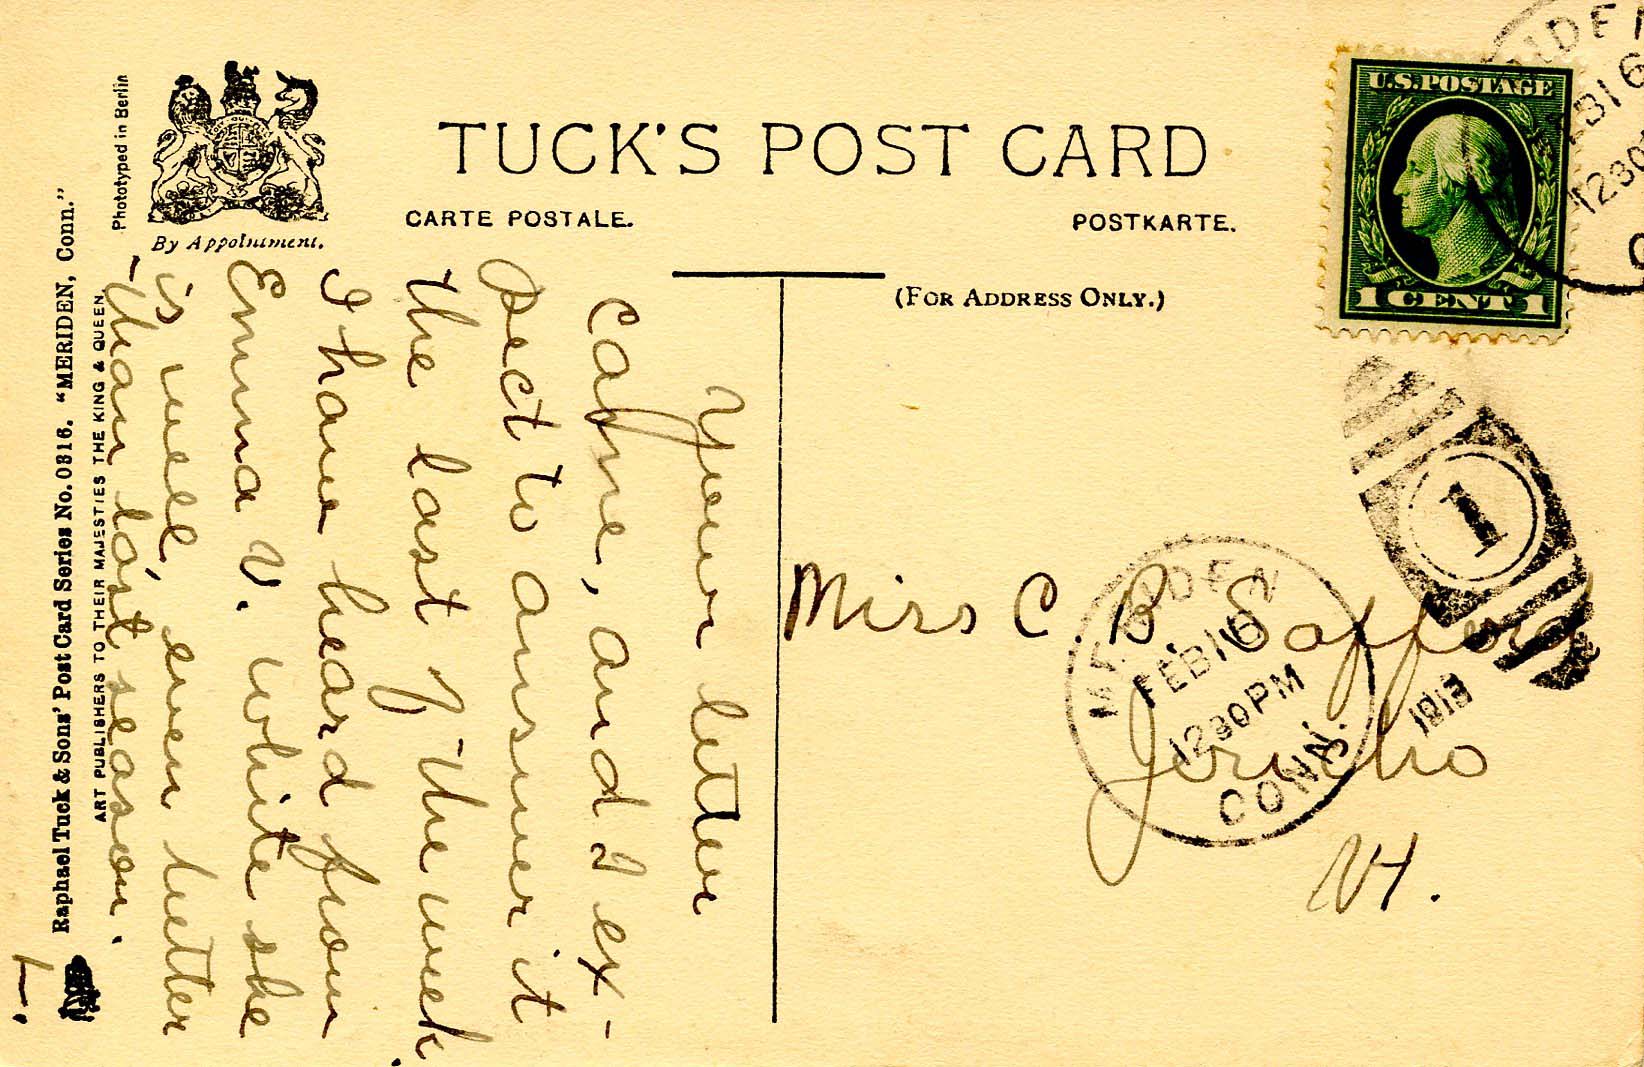 Phototyped in Berlin
By Appointment.
TUCK'S POST CARD
CARTE POSTALE.
POSTKARTE.
(FOR ADDRESS ONLY.)
U.S. POSTAGE
1 CENT 1
FEB 16
1230
1
MERIDEN
FEB 16
1230 PM
CONN.
1913
Miss C. B. Safford
Jericho
Vt.
Your letter
came, and I ex-
pect to answer it
the last of the week.
I have heard from
Emma V. white she
is well, even better
than last season.
L.
Raphael Tuck & Sons' Post Card Series No. 0316. "MERIDEN, Conn."
ART PUBLISHERS TO THEIR MAJESTIES THE KING & QUEEN.